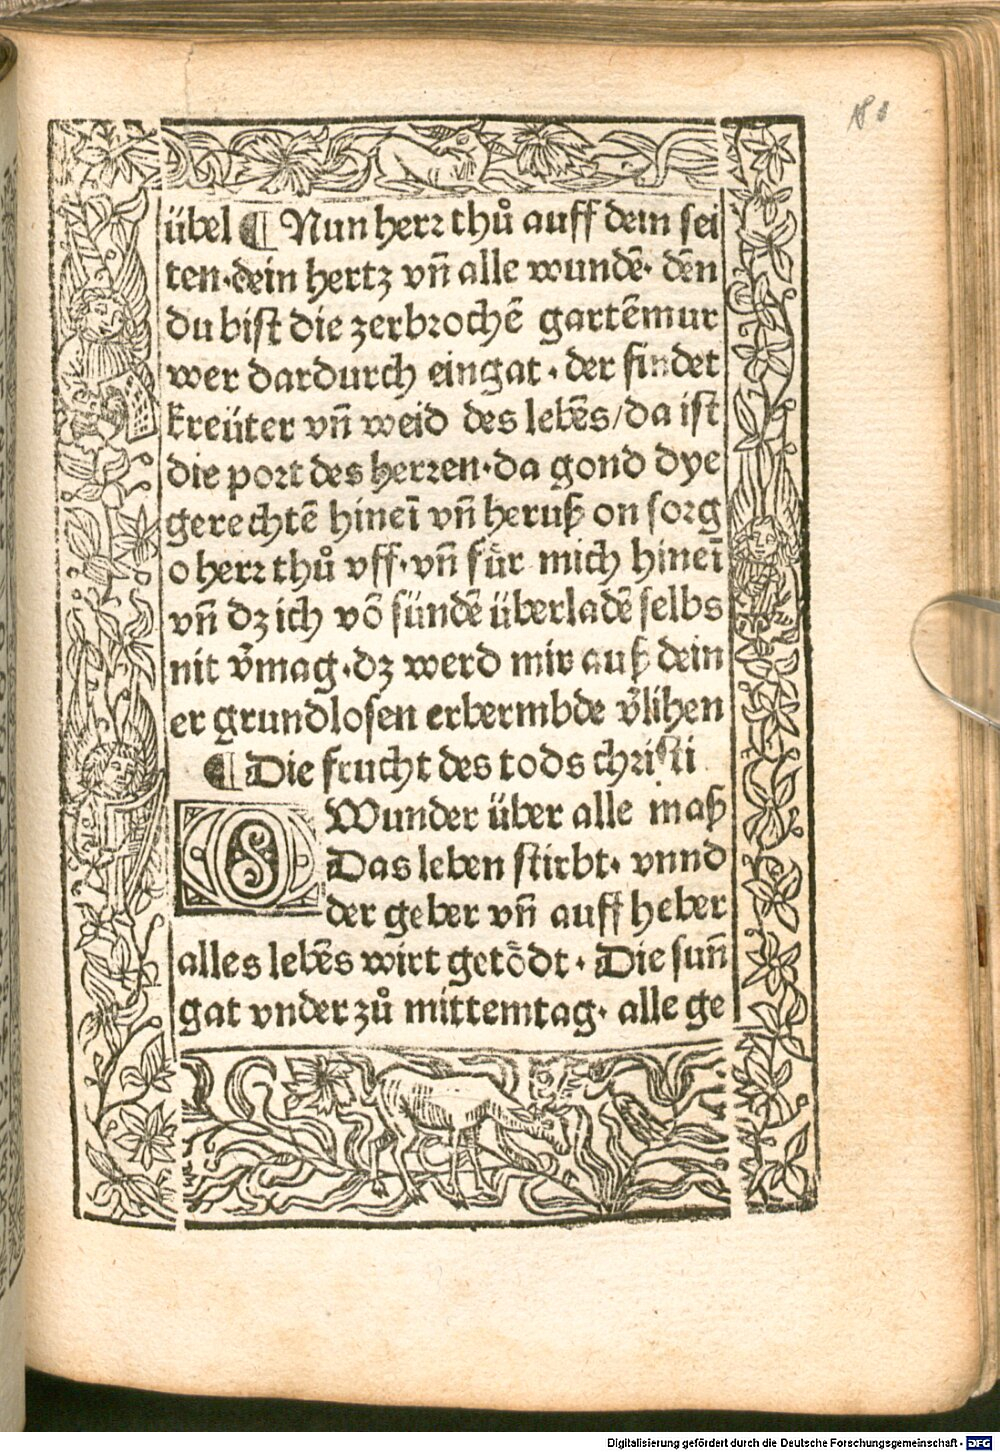 übel ¶ Nun herꝛ thů auff dein sei
ten·dein hertz vñ alle wundē· dēn
du bist die zerbrochē gartēmur
wer dardurch eingat · der findet
kreüter vñ weid des lebēs/da ist
die poꝛt des herꝛen·da gond dye
gerechtē hineī vñ heruß on soꝛg
o herꝛ thů vff·vñ fůr mich hineī
vñ dz ich võ sündē überladē selbs
nit v̄mag·dz werd mir auß dein
er grundlosen erbermbde v̄lihen
¶ Die frucht des tods chꝛisti
O Wunder über alle maß
Das leben stirbt· vnnd
der geber vñ auff heber
alles lebēs wirt getȫdt · Die suñ
gat vnder zů mittemtag· alle ge
Digitalisierung gefördert durch die Deutsche Forschungsgemeinschaft - DFG